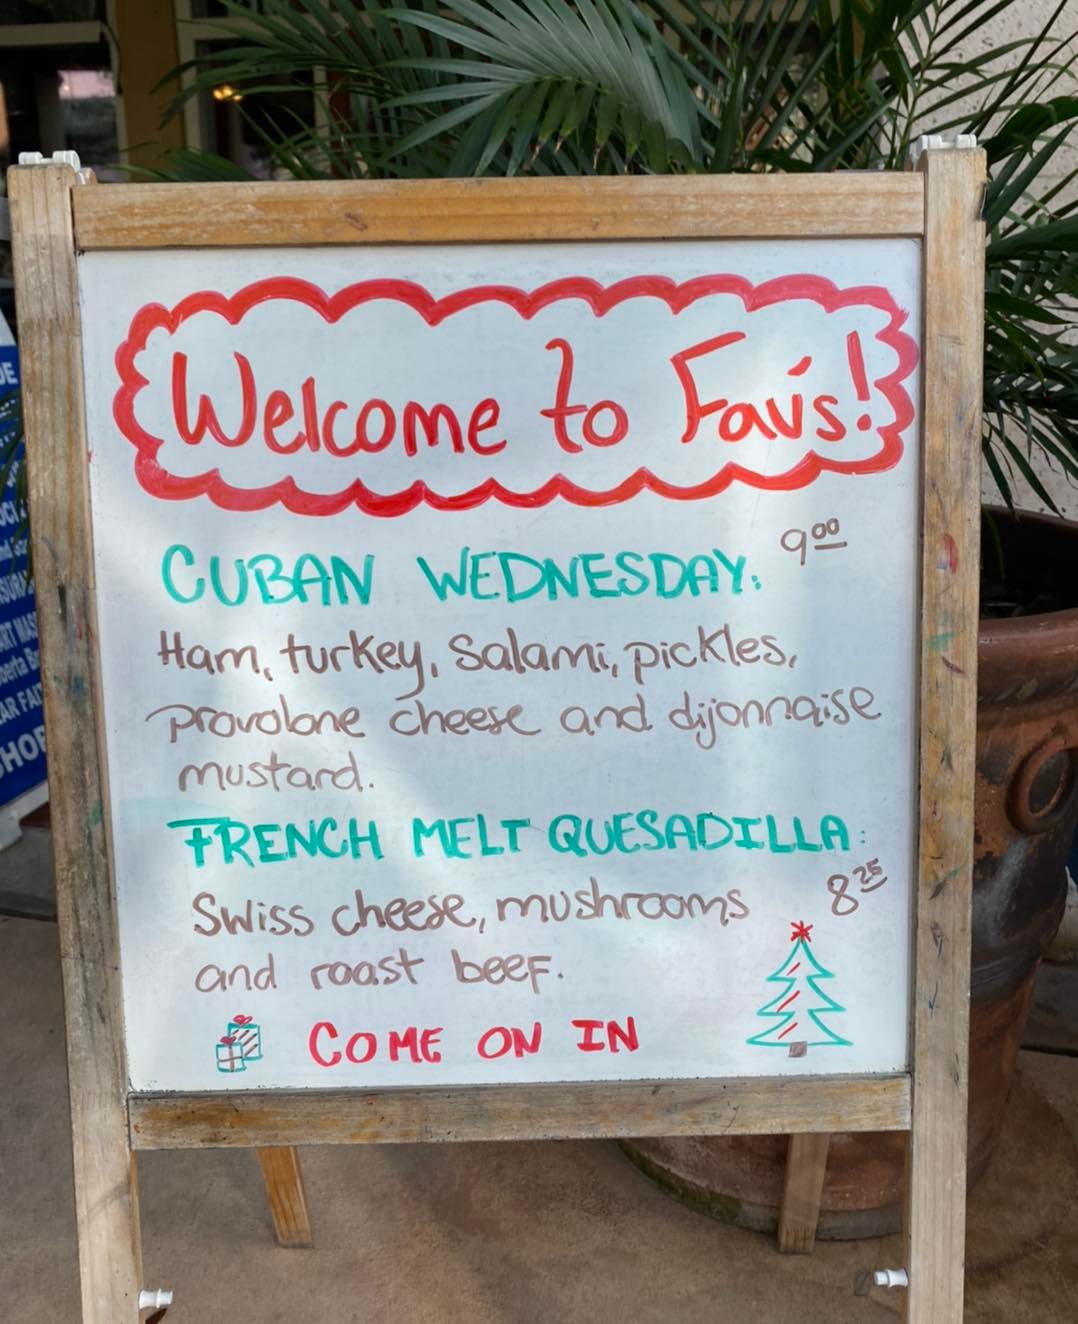 Welcome to Fav's!
CUBAN WEDNESDAY: 9⁰⁰
Ham, turkey, Salami, pickles,
provolone cheese and dijonnaise
mustard.
FRENCH MELT QUESADILLA:
8²⁵
Swiss cheese, mushrooms
and roast beef.
COME ON IN